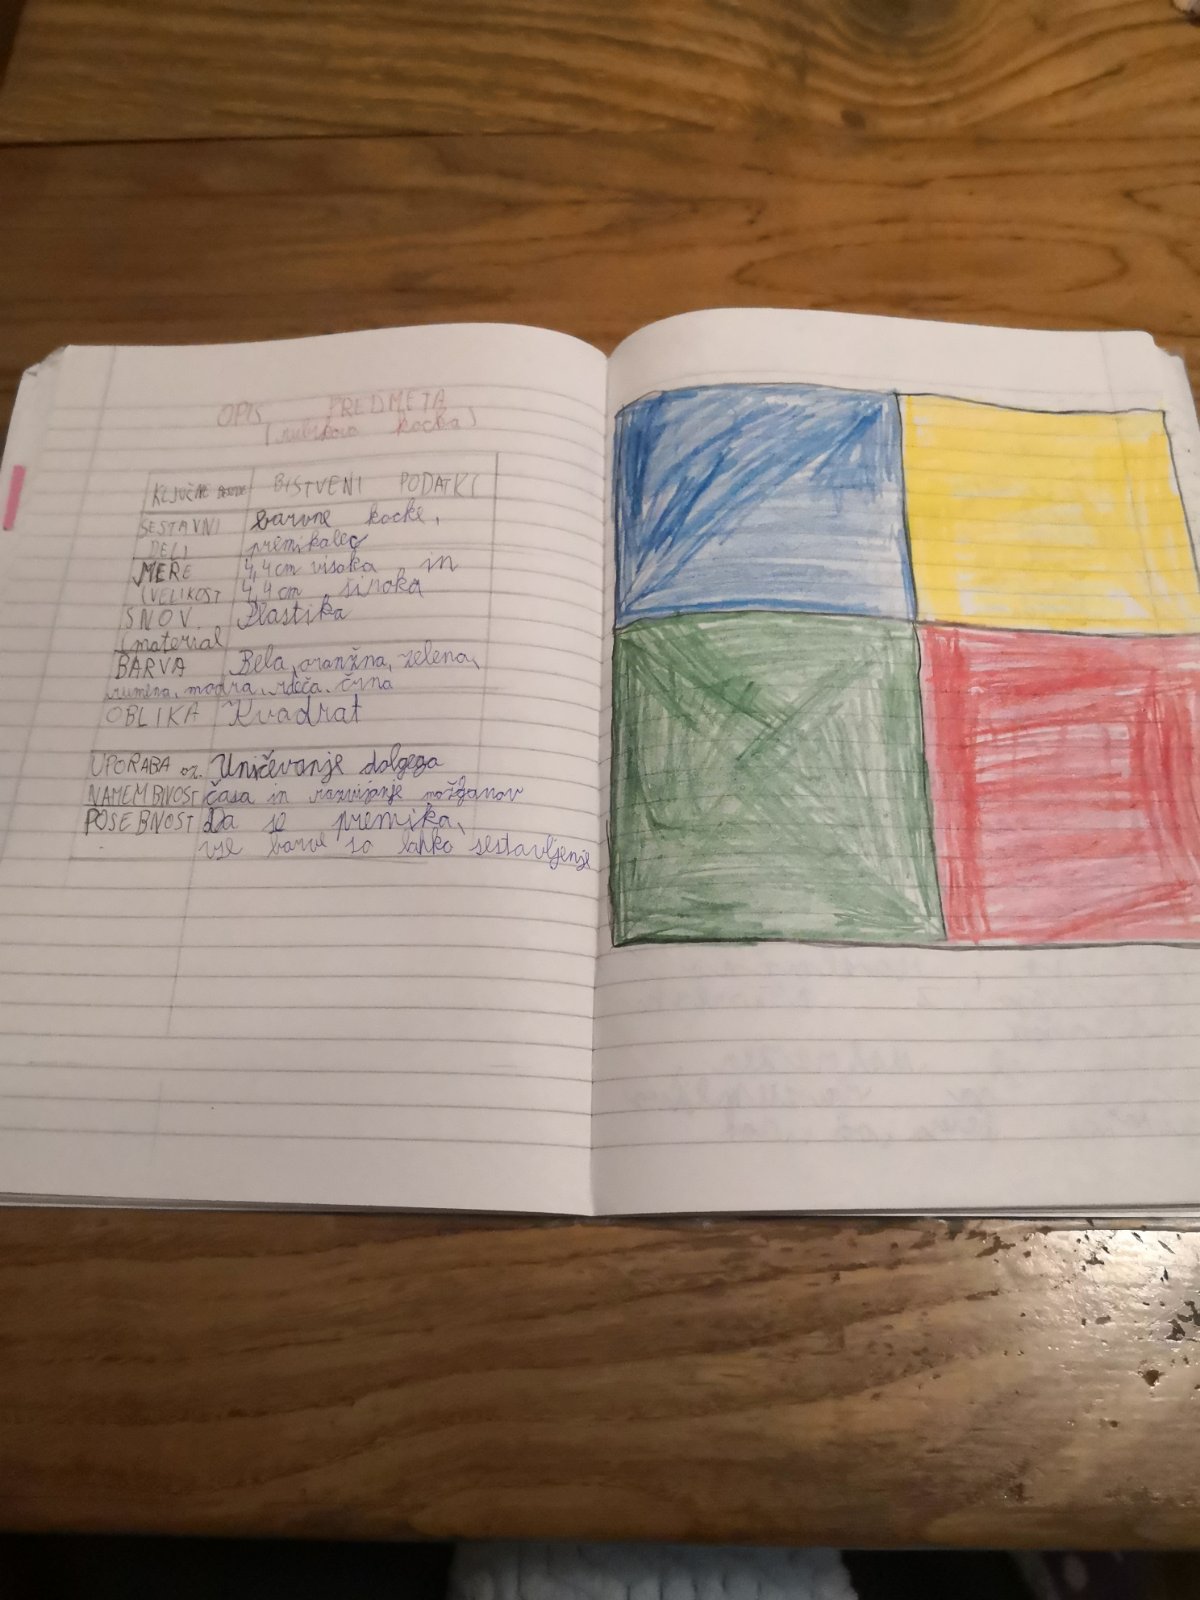 OPIS PREDMETA
(rubikova kocka)
KLJUČNE BISTVENI PODATKI
SESTAVNI barvne kocke,
DELI premikalec
MERE 4,4 cm visoka in
(VELIKOST 4,4 cm široka
SNOV. Plastika
(material
BARVA Bela, oranžna, zelena,
rumena, modra, rdeča, črna
OBLIKA Kvadrat
UPORABA oz. Uničevanje dolgega
NAMEMBNOST časa in razvijanje možganov
POSEBNOST Da se premika,
vse barve so lahko sestavljenje